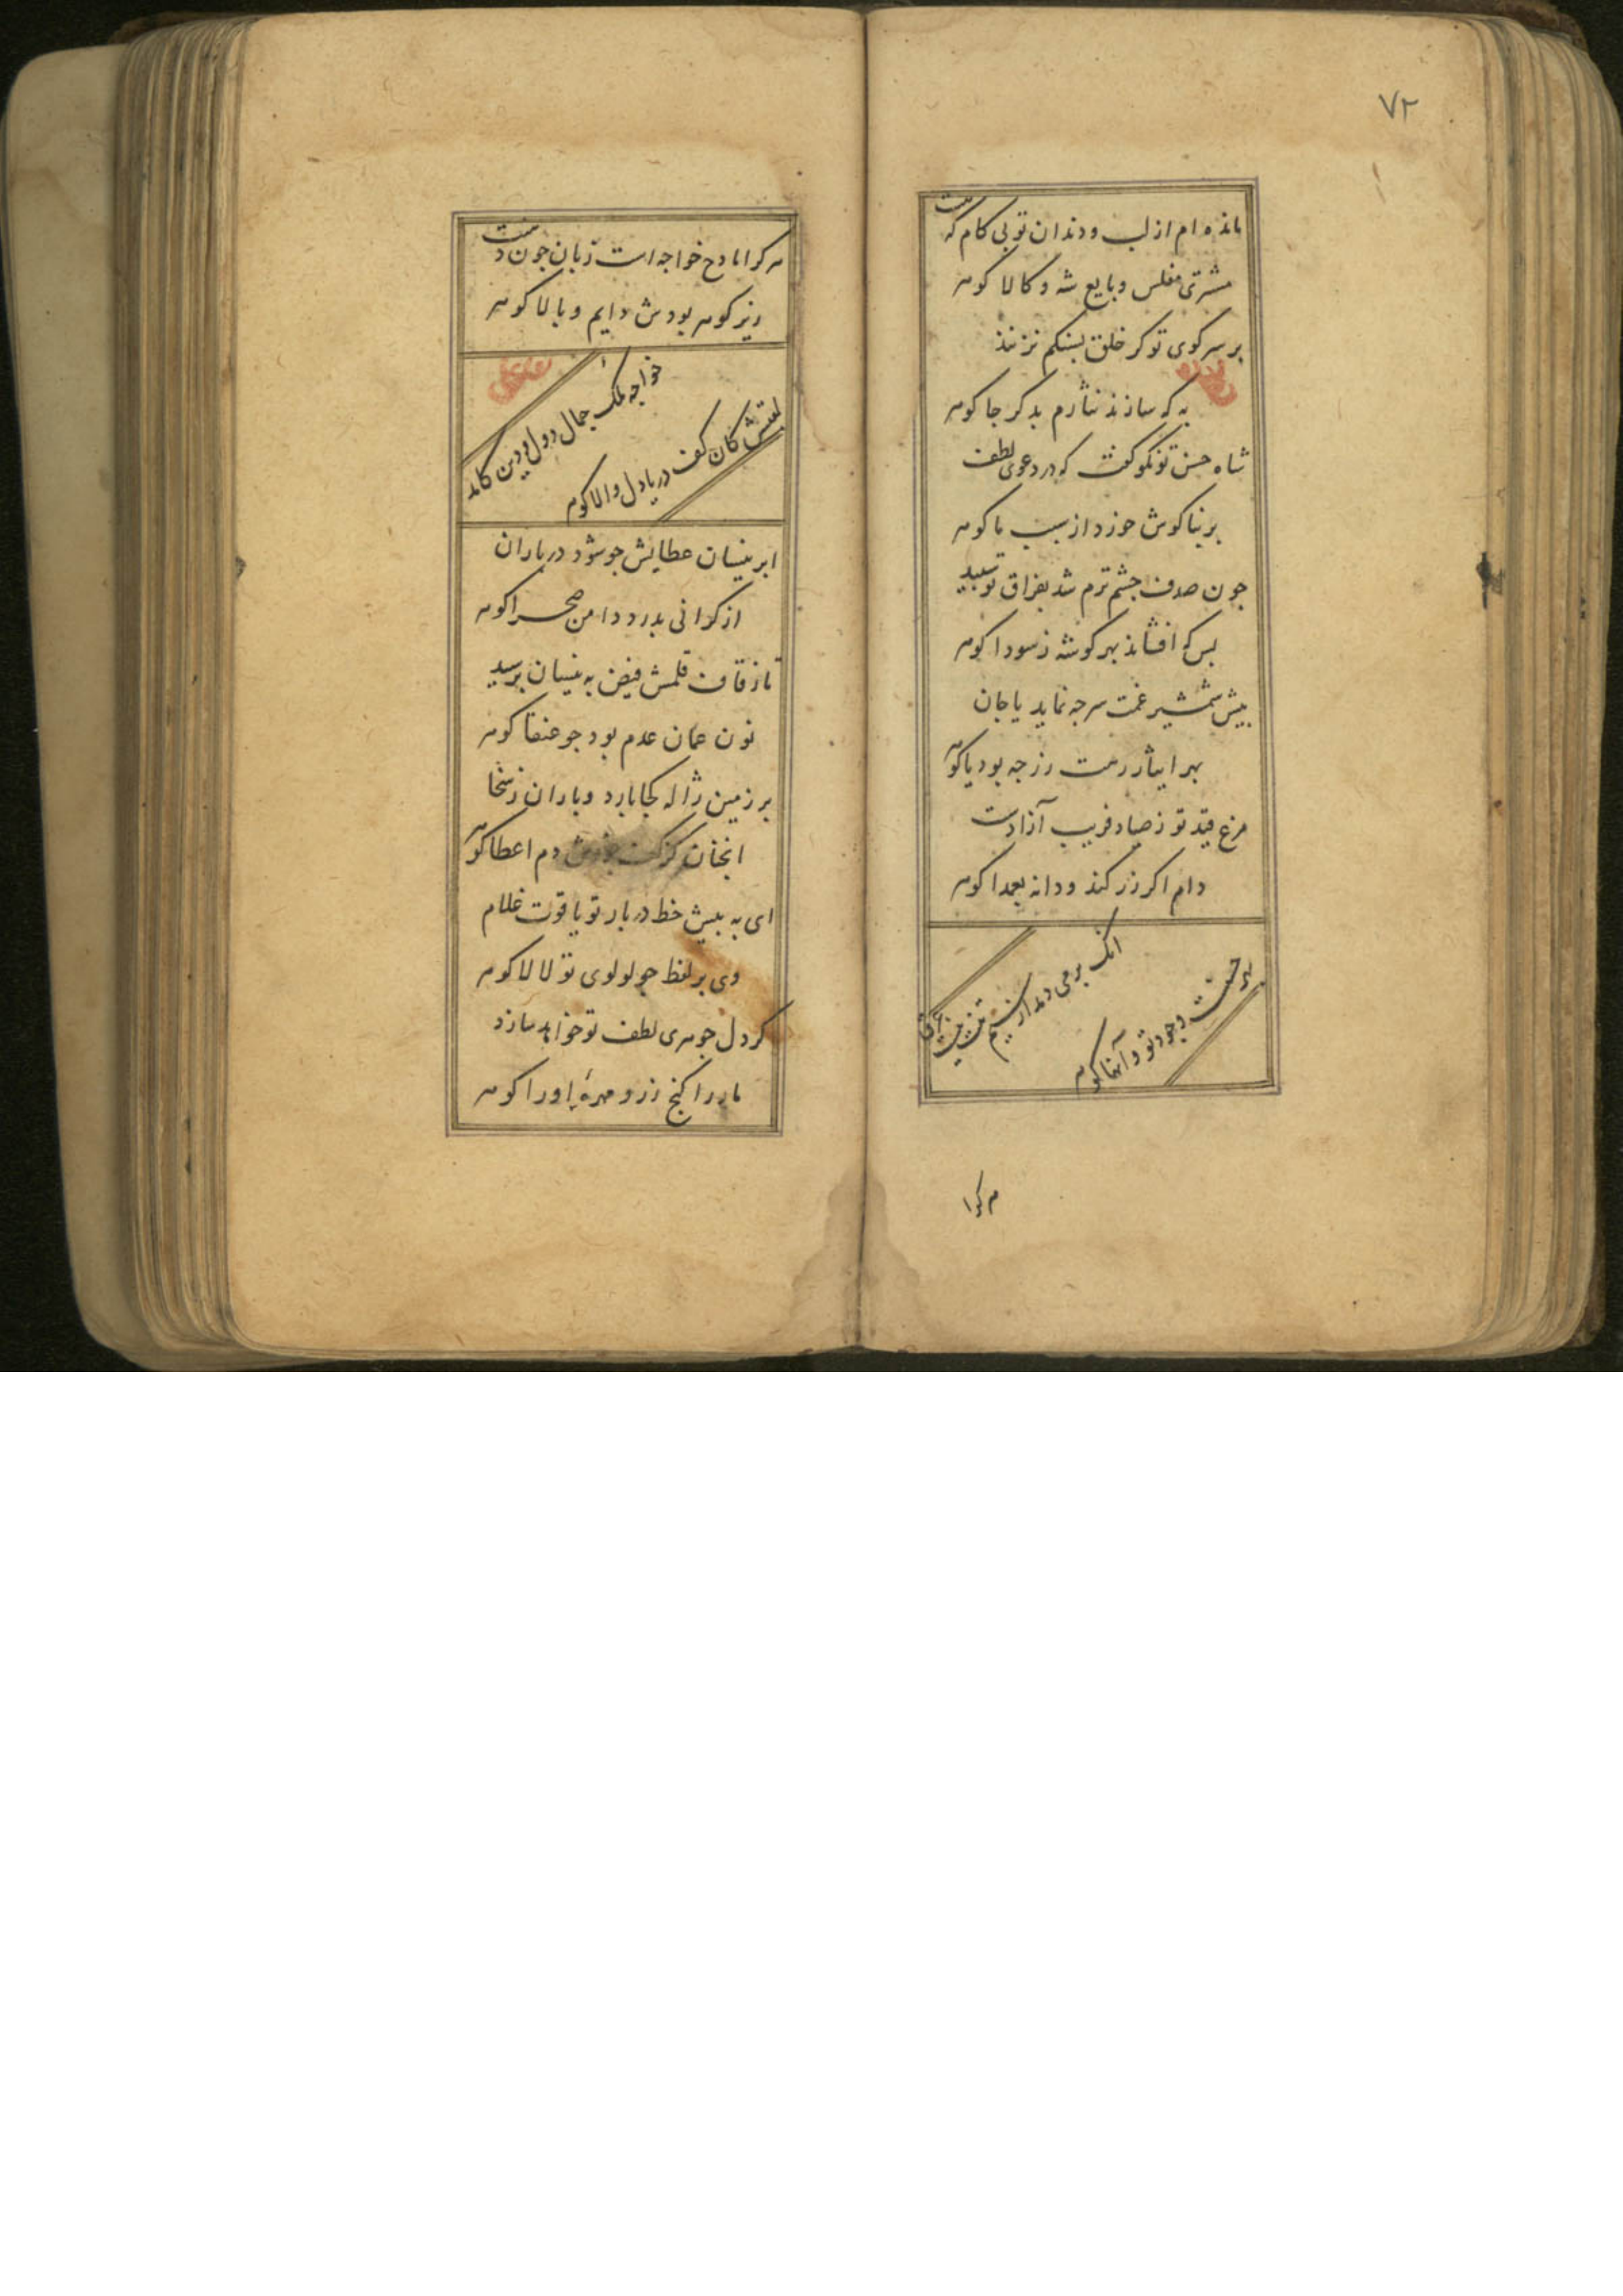 ۷۲
مانده ام از لب و دندان تو بی کام که هست
مشتری مفلس و بایع شه و کالا کوهر
بر سر کوی تو کر خلق بسنکم نزنند
به که سازند نثارم بدکر جا کوهر
شاه حسن تو نکو گفت که در دعوی لطف
بر بناکوش خورد از سبب ما کوهر
جون صدف جشم ترم شد بفراق تو سبید
بس که افشاند بهر کوشه ز سودا کوهر
بیش شمشیر غمت سر جه نماید یا جان
بهر ایثار رهت زر جه بود یا کوهر
مرغ قید تو ز صیاد فریب آزادست
دام اکر زر کند و دانه بعمدا کوهر
انک بر می دمد از سیم تنت نیست عرق
بهر حسنست وجود تو و آنها کوهر
هر کرا
هر کرا مادح خواجه است زبان جون دشت
زیر کوهر بودش دایم و بالا کوهر
خواجه ملک جمال دول و دین که
لقبش کان کف دریادل والا کوهر
ابر نیسان عطایش جو شود در باران
از کرانی بدرد دامن صحرا کوهر
تا ز قاف قلمش فیض به نیسان برسید
نون عمان عدم بود جو عنقا کوهر
بر زمین ژاله کجا بارد و باران ز سخا
انجنان کز کف دم اعطا کوهر
ای به بیش خط دربار تو یاقوت غلام
وی بر لفظ جو لولوی تو لالا کوهر
کر دل جوهری لطف تو خواهد سازد
مار را کنج زر و مهرهٔ او را کوهر